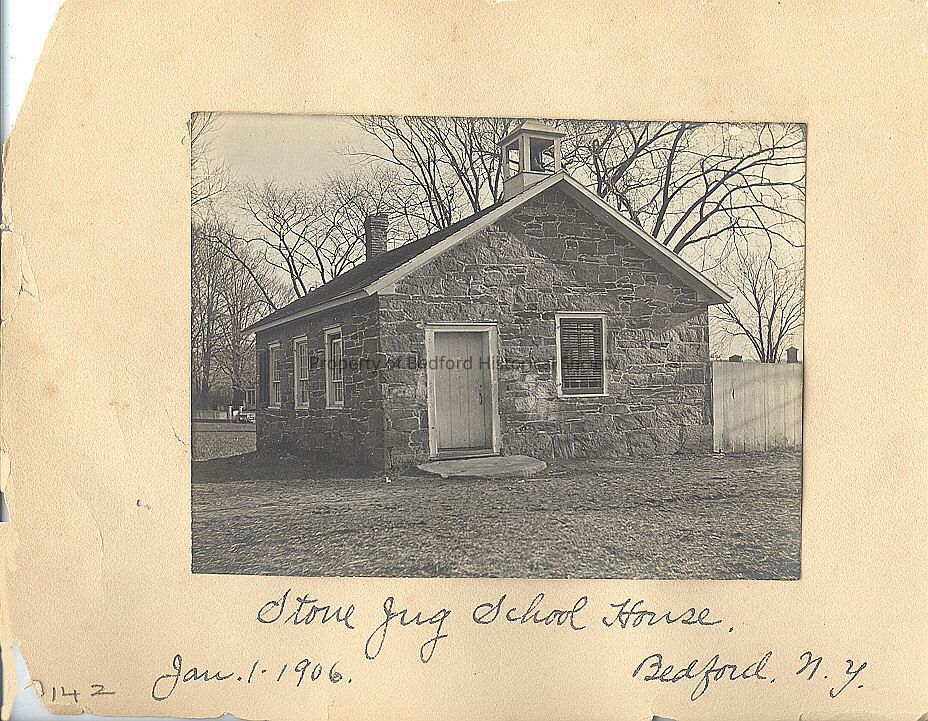 Property of Bedford Historical Society
Stone Jug School House.
Jan. 1 - 1906.
Bedford, N. Y.
142